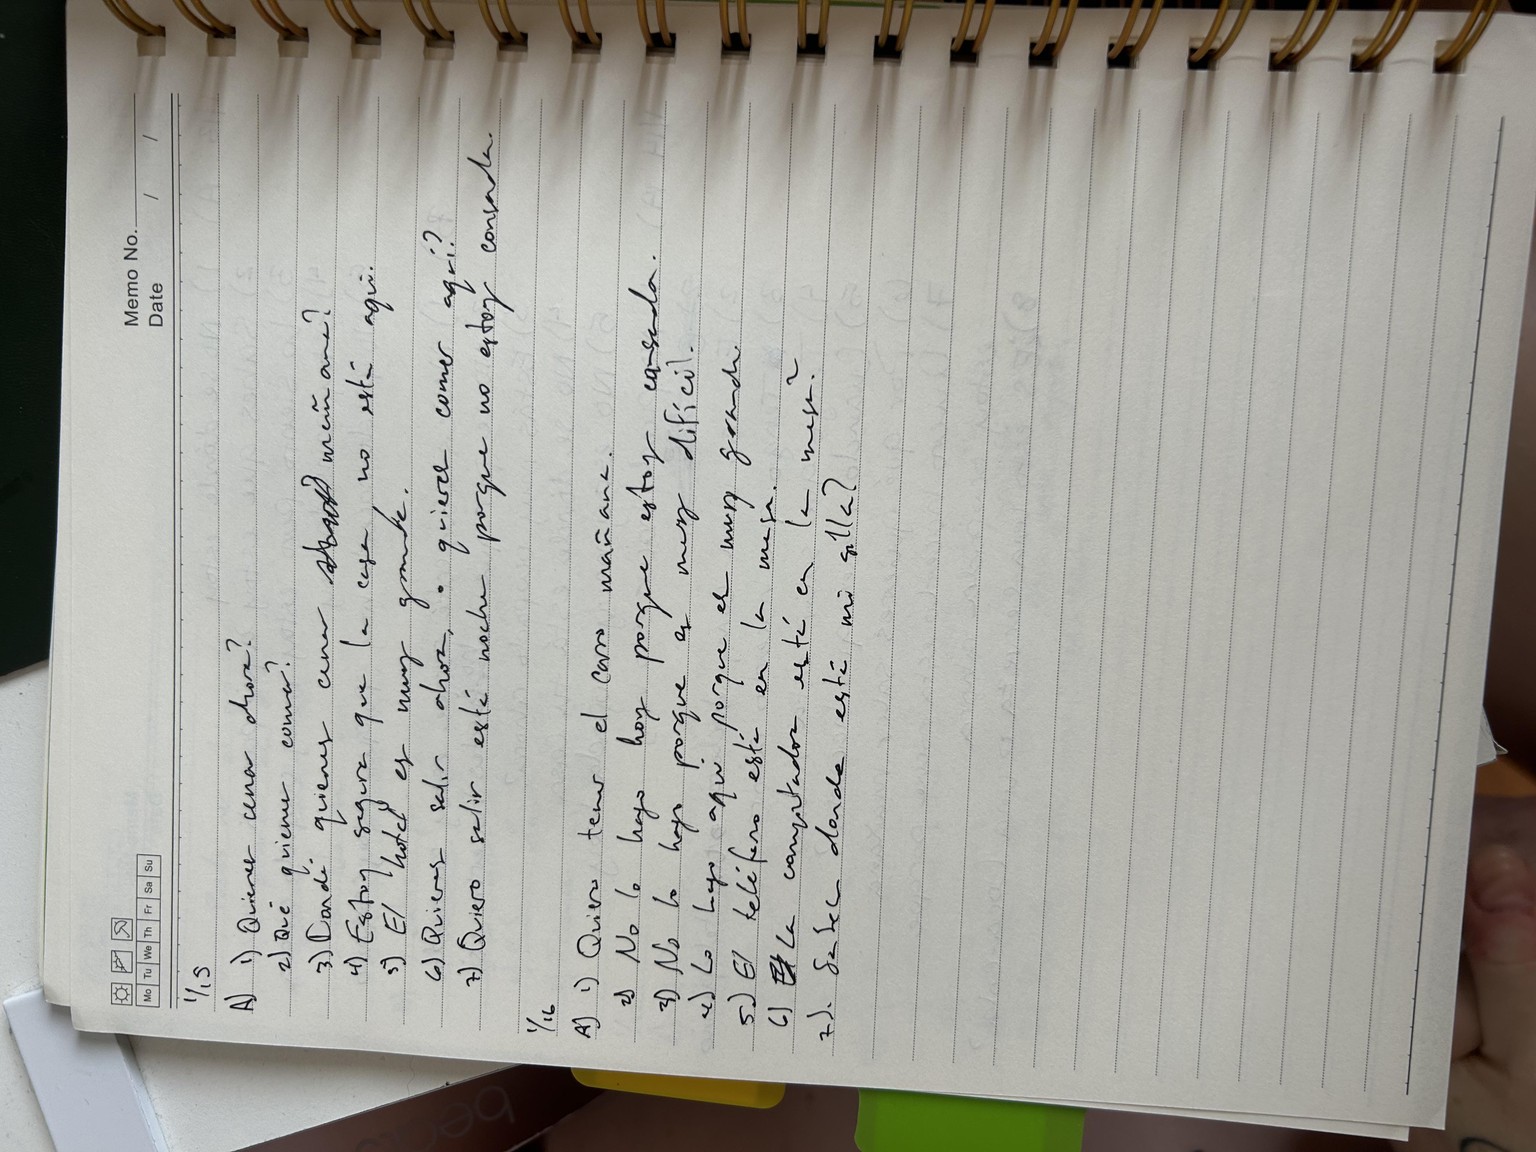 Memo No.
Date / /
Mo Tu We Th Fr Sa Su
1/15
A) 1) Quieres cenar ahora?
2) Qué quieres comer?
3) Dondé quieres cenar mañana?
4) Estoy segura que la casa no está aquí.
5) El hotel es muy grande.
6) Quieres salir ahora, o quieres comer aquí?
7) Quiero salir esté noche porque no estoy cansada.
1/16
A) 1) Quiero tener el carro mañana.
2) No lo hago hoy porque estoy cansada.
3) No lo hago porque es muy difícil.
4) Lo hago aquí porque es muy grande.
5) El teléfono está en la mesa.
6) La computadora está en la mesa?
7) donde está mi silla?